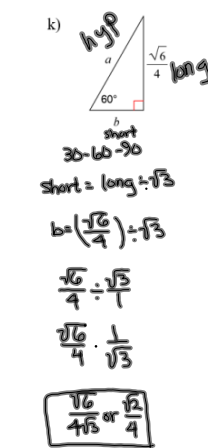 k)
hyp
a
√6/4 long
60°
b
short
30-60-90
short = long ÷ √3
b = (√6/4) ÷ √3
√6/4 ÷ √3/1
√6/4 · 1/√3
√6/4√3 or √2/4